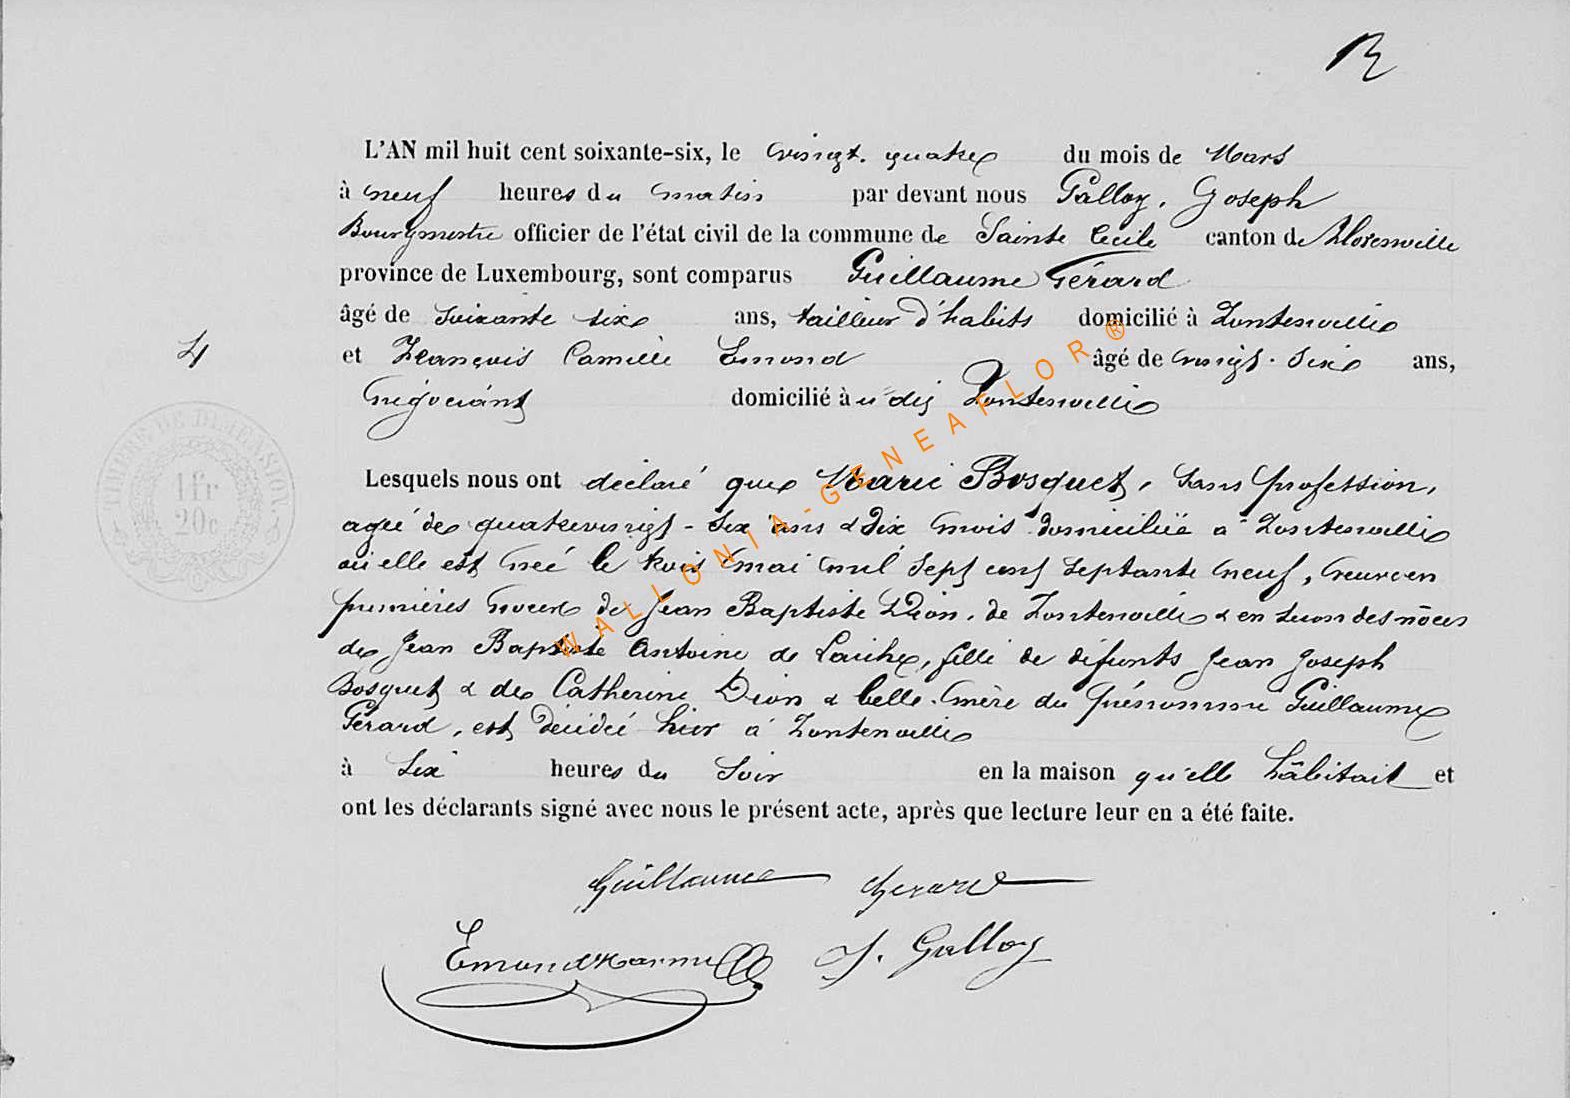 L'AN mil huit cent soixante-six, le vingt-quatre du mois de Mars
à neuf heures du matin par devant nous Galloy, Joseph
Bourgmestre officier de l'état civil de la commune de Sainte Cecile canton de Florenville
province de Luxembourg, sont comparus Guillaume Gérard
âgé de soixante six ans, tailleur d'habits domicilié à Fontenoille
4
et François Camille Emond âgé de vingt-six ans,
négociant domicilié à u dit Fontenoille
TIMBRE DE DIMENSION.
1 fr
20c
Lesquels nous ont déclaré que Marie Bosquet, sans profession,
agée de quatrevingt-six ans & dix mois domiciliée à Fontenoille
où elle est née le trois mai mil sept cent septante neuf, veuve en
premières noces de Jean Baptiste Dion, de Fontenoille & en secondes nôces
de Jean Baptiste Antoine de Laiche, fille de défunts Jean Joseph
Bosquet & de Catherine Dion & belle-mère du prénommé Guillaume
Gérard, est décédée hier à Fontenoille
à six heures du soir en la maison qu'elle hâbitait et
ont les déclarants signé avec nous le présent acte, après que lecture leur en a été faite.
Guillaume Gerard
Emond J. Galloy
WALLONIA-GENEAFLOR®